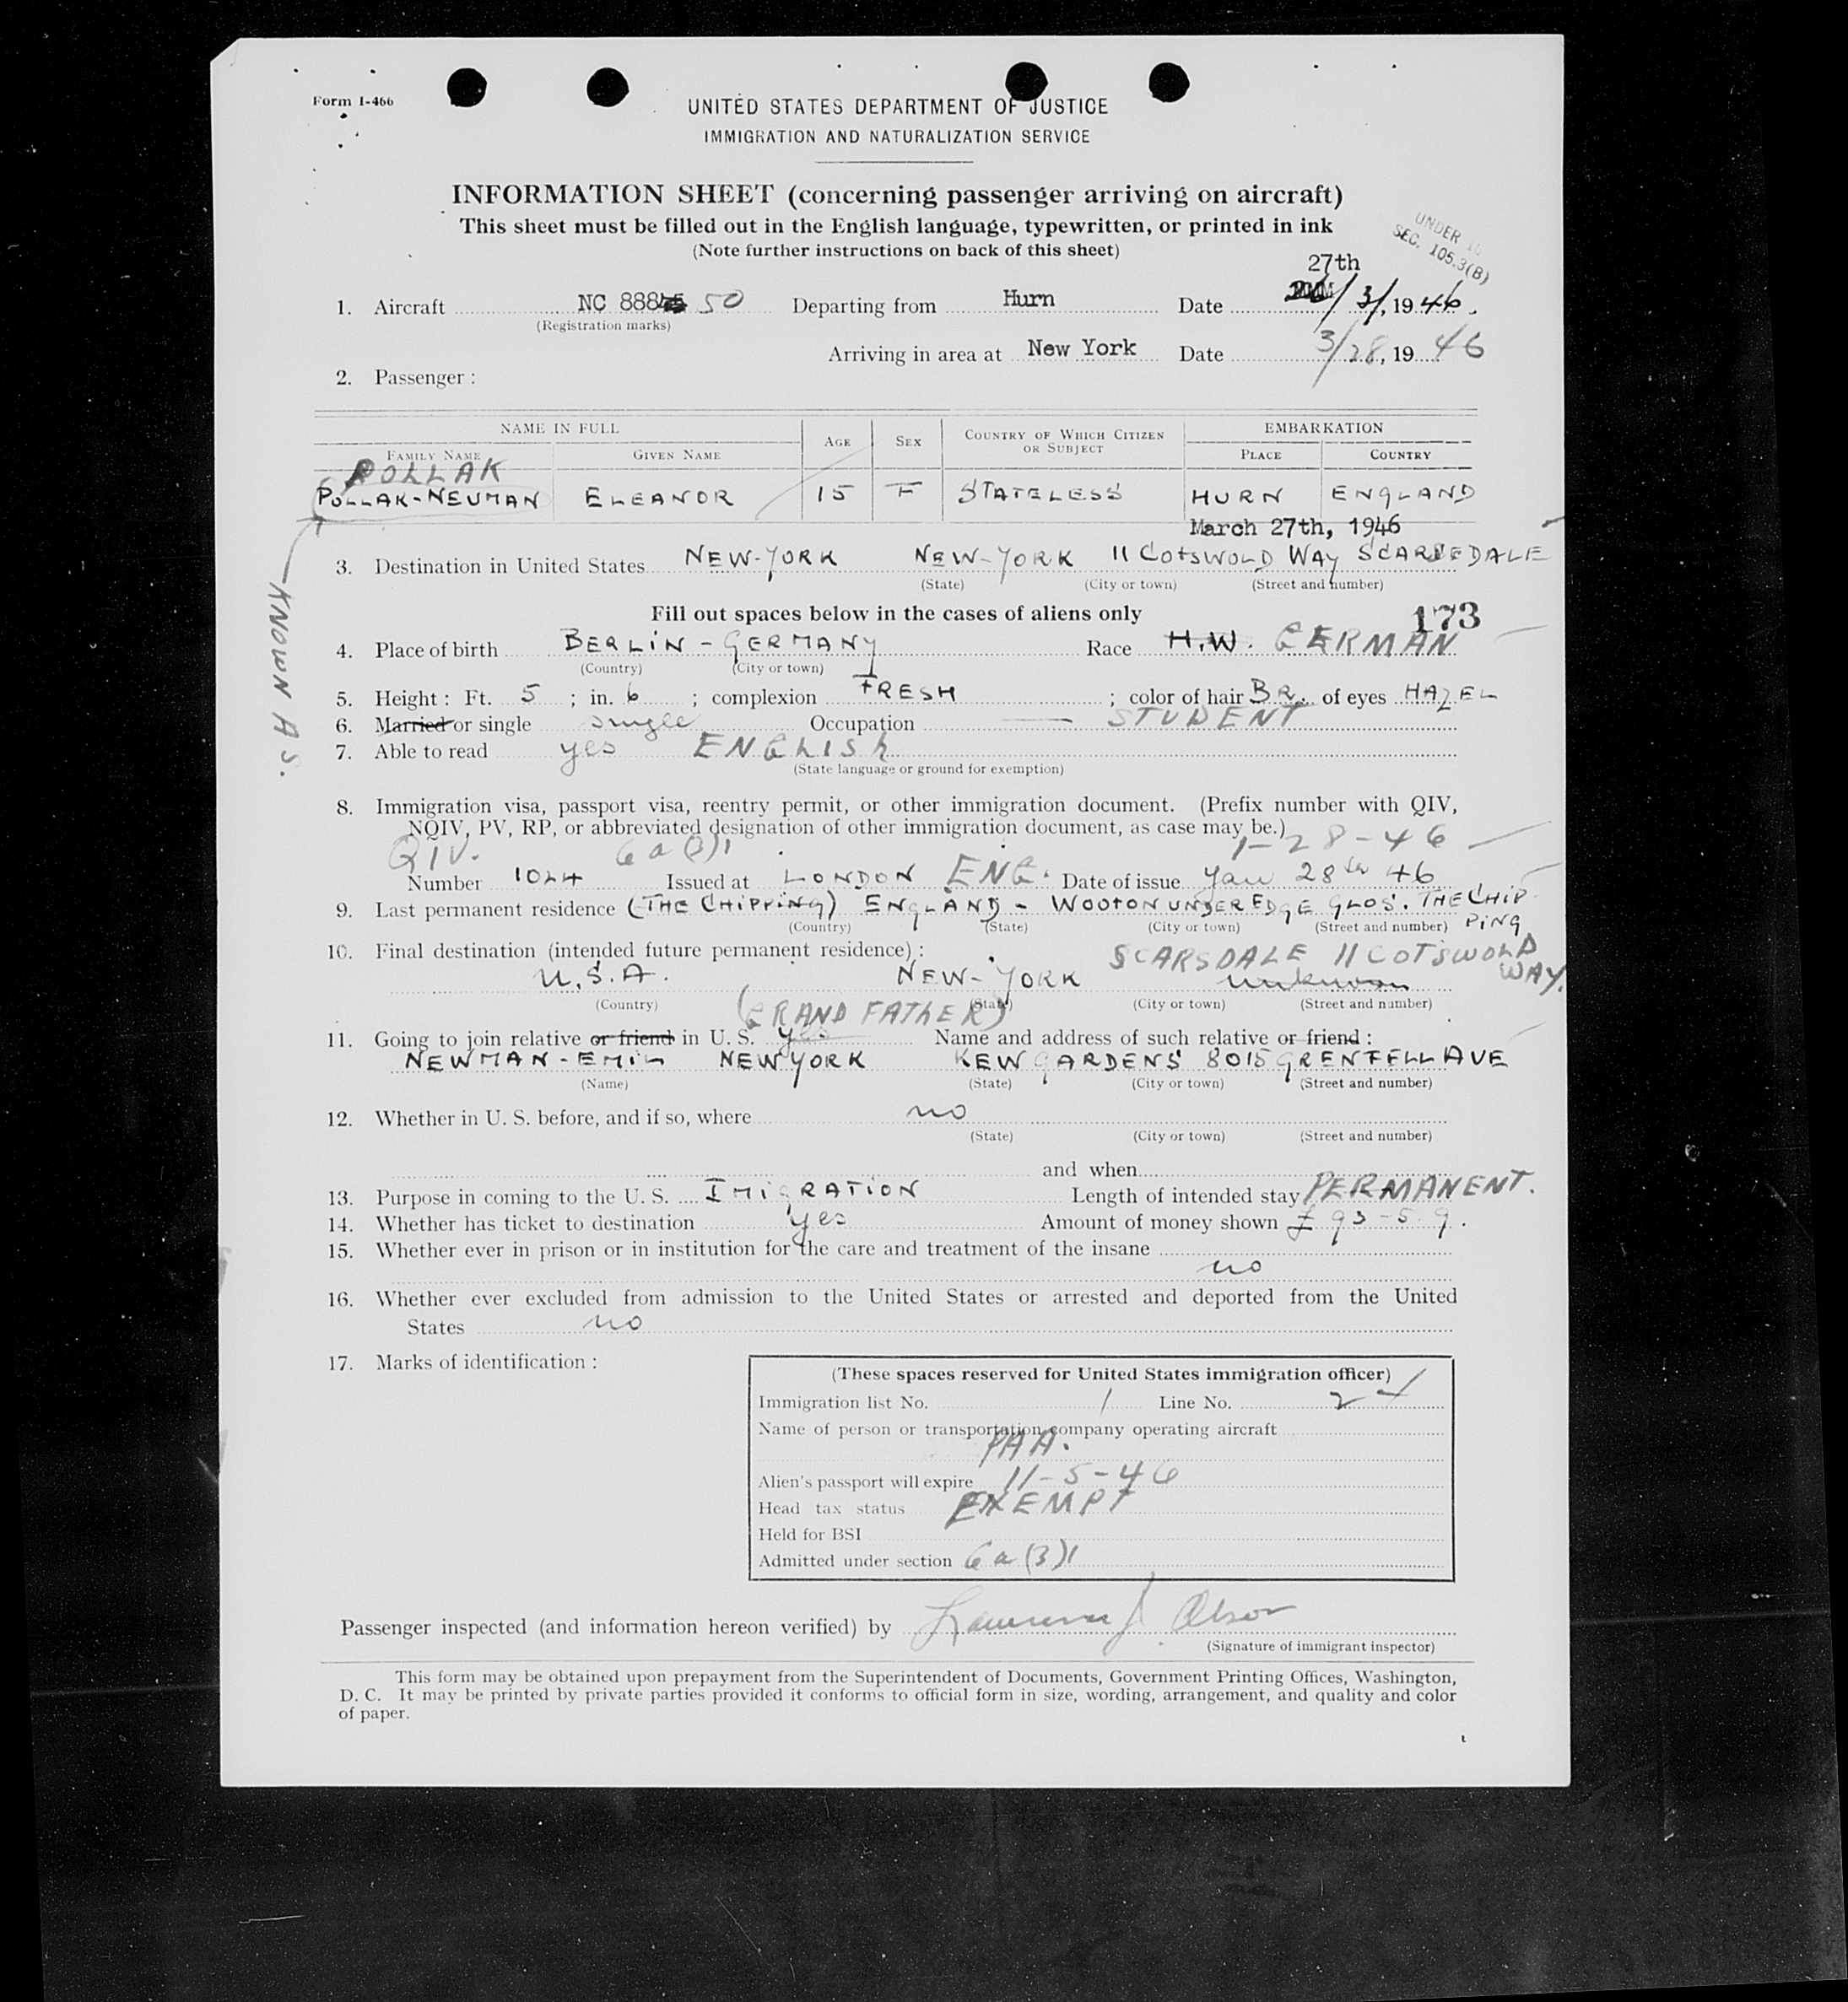 Form I-466
UNITED STATES DEPARTMENT OF JUSTICE
IMMIGRATION AND NATURALIZATION SERVICE
INFORMATION SHEET (concerning passenger arriving on aircraft)
This sheet must be filled out in the English language, typewritten, or printed in ink
(Note further instructions on back of this sheet)
UNDER
SEC. 105.3(B)
27th
1. Aircraft NC 888 50 Departing from Hurn Date /3/, 1946.
(Registration marks)
Arriving in area at New York Date 3/28, 1946
2. Passenger :
NAME IN FULL AGE SEX COUNTRY OF WHICH CITIZEN OR SUBJECT EMBARKATION
FAMILY NAME GIVEN NAME PLACE COUNTRY
POLLAK
POLLAK-NEUMAN ELEANOR 15 F STATELESS HURN ENGLAND
March 27th, 1946
KNOWN AS.
3. Destination in United States NEW-YORK NEW-YORK 11 COTSWOLD WAY SCARSEDALE
(State) (City or town) (Street and number)
Fill out spaces below in the cases of aliens only 173
4. Place of birth BERLIN - GERMANY Race H.W. GERMAN
(Country) (City or town)
5. Height : Ft. 5 ; in. 6 ; complexion FRESH ; color of hair BR. of eyes HAZEL
6. Married or single single Occupation STUDENT
7. Able to read yes ENGLISH
(State language or ground for exemption)
8. Immigration visa, passport visa, reentry permit, or other immigration document. (Prefix number with QIV,
NQIV, PV, RP, or abbreviated designation of other immigration document, as case may be.)
QIV. 6a(3)1 1-28-46
Number 1024 Issued at LONDON ENG. Date of issue Jan 28th 46
9. Last permanent residence (THE CHIPPING) ENGLAND - WOOTON UNDER EDGE GLOS. THE CHIPPING
(Country) (State) (City or town) (Street and number)
10. Final destination (intended future permanent residence) : SCARSDALE 11 COTSWOLD WAY.
U.S.A. NEW-YORK unknown
(Country) (State) (City or town) (Street and number)
(GRAND FATHER)
11. Going to join relative or friend in U. S. yes Name and address of such relative or friend :
NEWMAN-EMIL NEW YORK KEW GARDENS 8015 GRENFELL AVE
(Name) (State) (City or town) (Street and number)
12. Whether in U. S. before, and if so, where no
(State) (City or town) (Street and number)
and when
13. Purpose in coming to the U. S. IMIGRATION Length of intended stay PERMANENT.
14. Whether has ticket to destination yes Amount of money shown £ 93-5-9.
15. Whether ever in prison or in institution for the care and treatment of the insane
no
16. Whether ever excluded from admission to the United States or arrested and deported from the United
States no
17. Marks of identification :
(These spaces reserved for United States immigration officer)
Immigration list No. 1 Line No. 2
Name of person or transportation company operating aircraft
PAA.
Alien's passport will expire 11-5-46
Head tax status EXEMPT
Held for BSI
Admitted under section 6a(3)1
Passenger inspected (and information hereon verified) by Lawrence J. Olson
(Signature of immigrant inspector)
This form may be obtained upon prepayment from the Superintendent of Documents, Government Printing Offices, Washington,
D. C. It may be printed by private parties provided it conforms to official form in size, wording, arrangement, and quality and color
of paper.